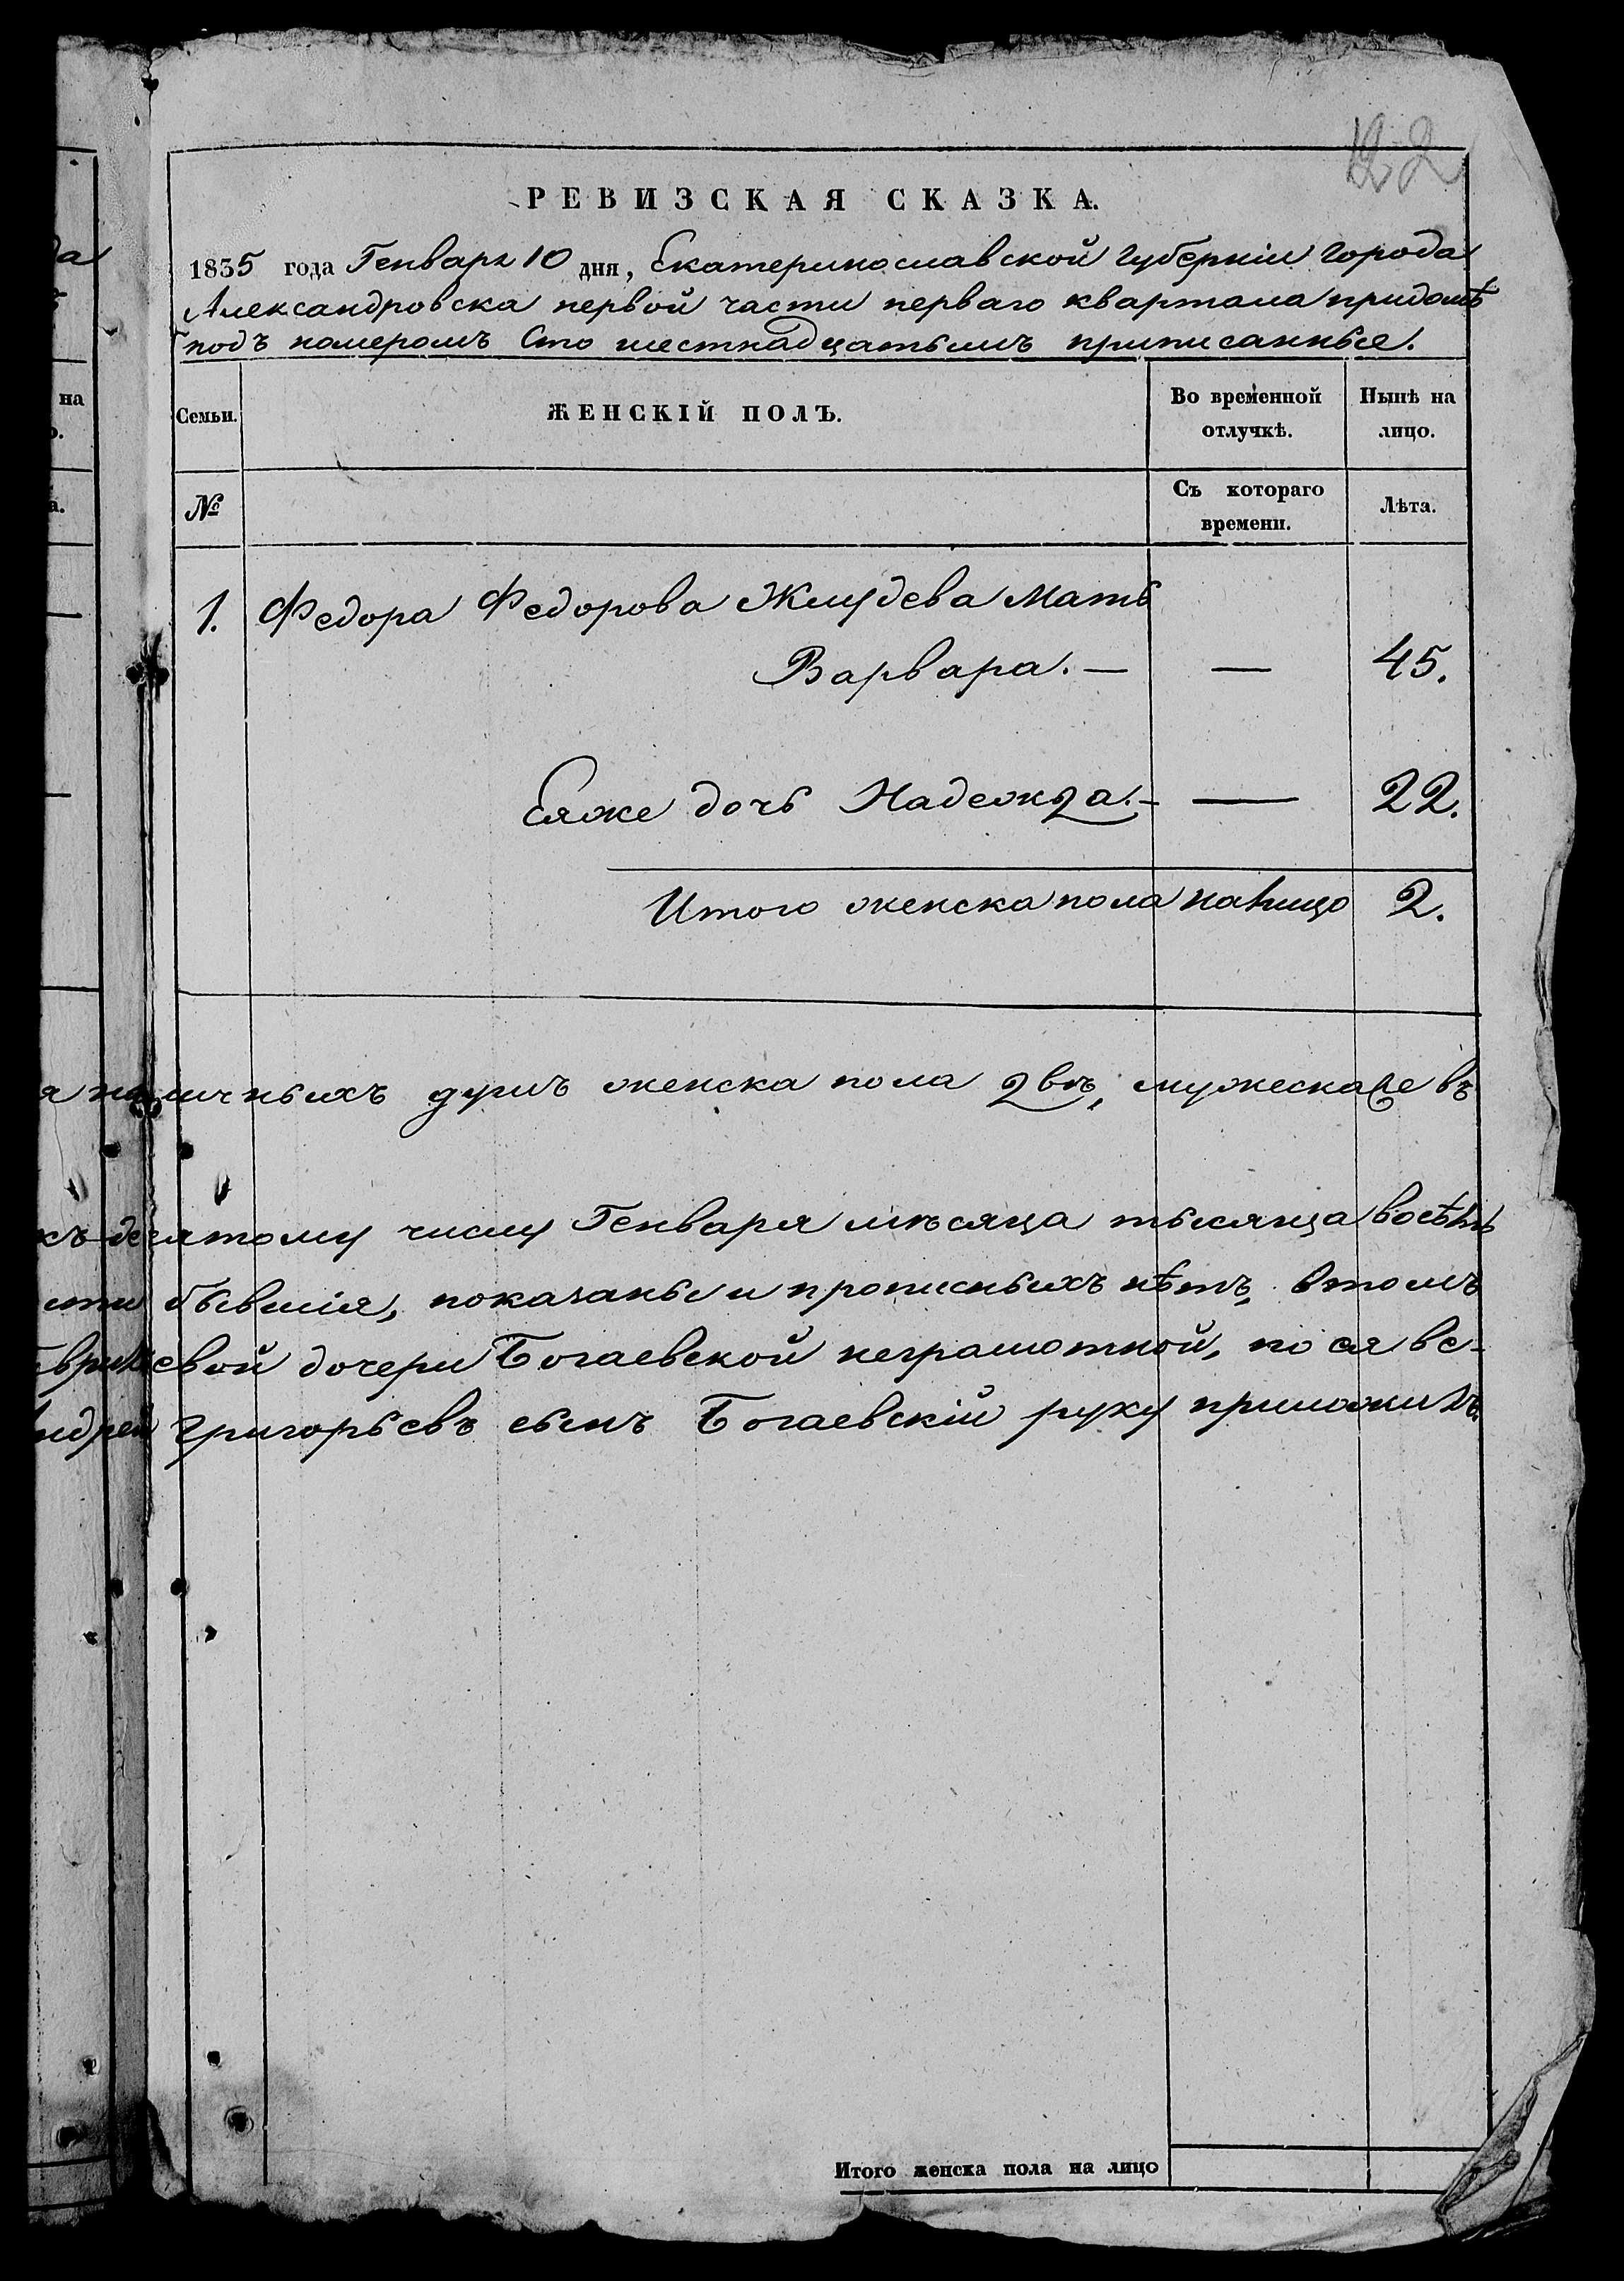 122
РЕВИЗСКАЯ СКАЗКА.
1835 года Генваря 10 дня, Екатеринославской губерніи города
Александровска первой части перваго квартала придомѣ
подъ номеромъ Сто шестнадцатымъ приписанные.
Семьи. ЖЕНСКІЙ ПОЛЪ. Во временной отлучкѣ. Нынѣ на лицо.
№ Съ котораго времени. Лѣта.
1. Федора Федорова Жмудева Мать
Варвара. — — 45.
Еяже дочь Надежда. — — 22.
Итого женска пола налицо 2.
личныхъ душъ женска пола двѣ, мужеска
десятому числу Генваря мѣсяца тысяща восѣмь
бывшія, показаны и прописныхъ нѣтъ, втомъ
евой дочери Богаевской неграмотной, по ея ве-
Андрей Григорьевъ сынъ Богаевскій руку приложилъ.
Итого женска пола на лицо